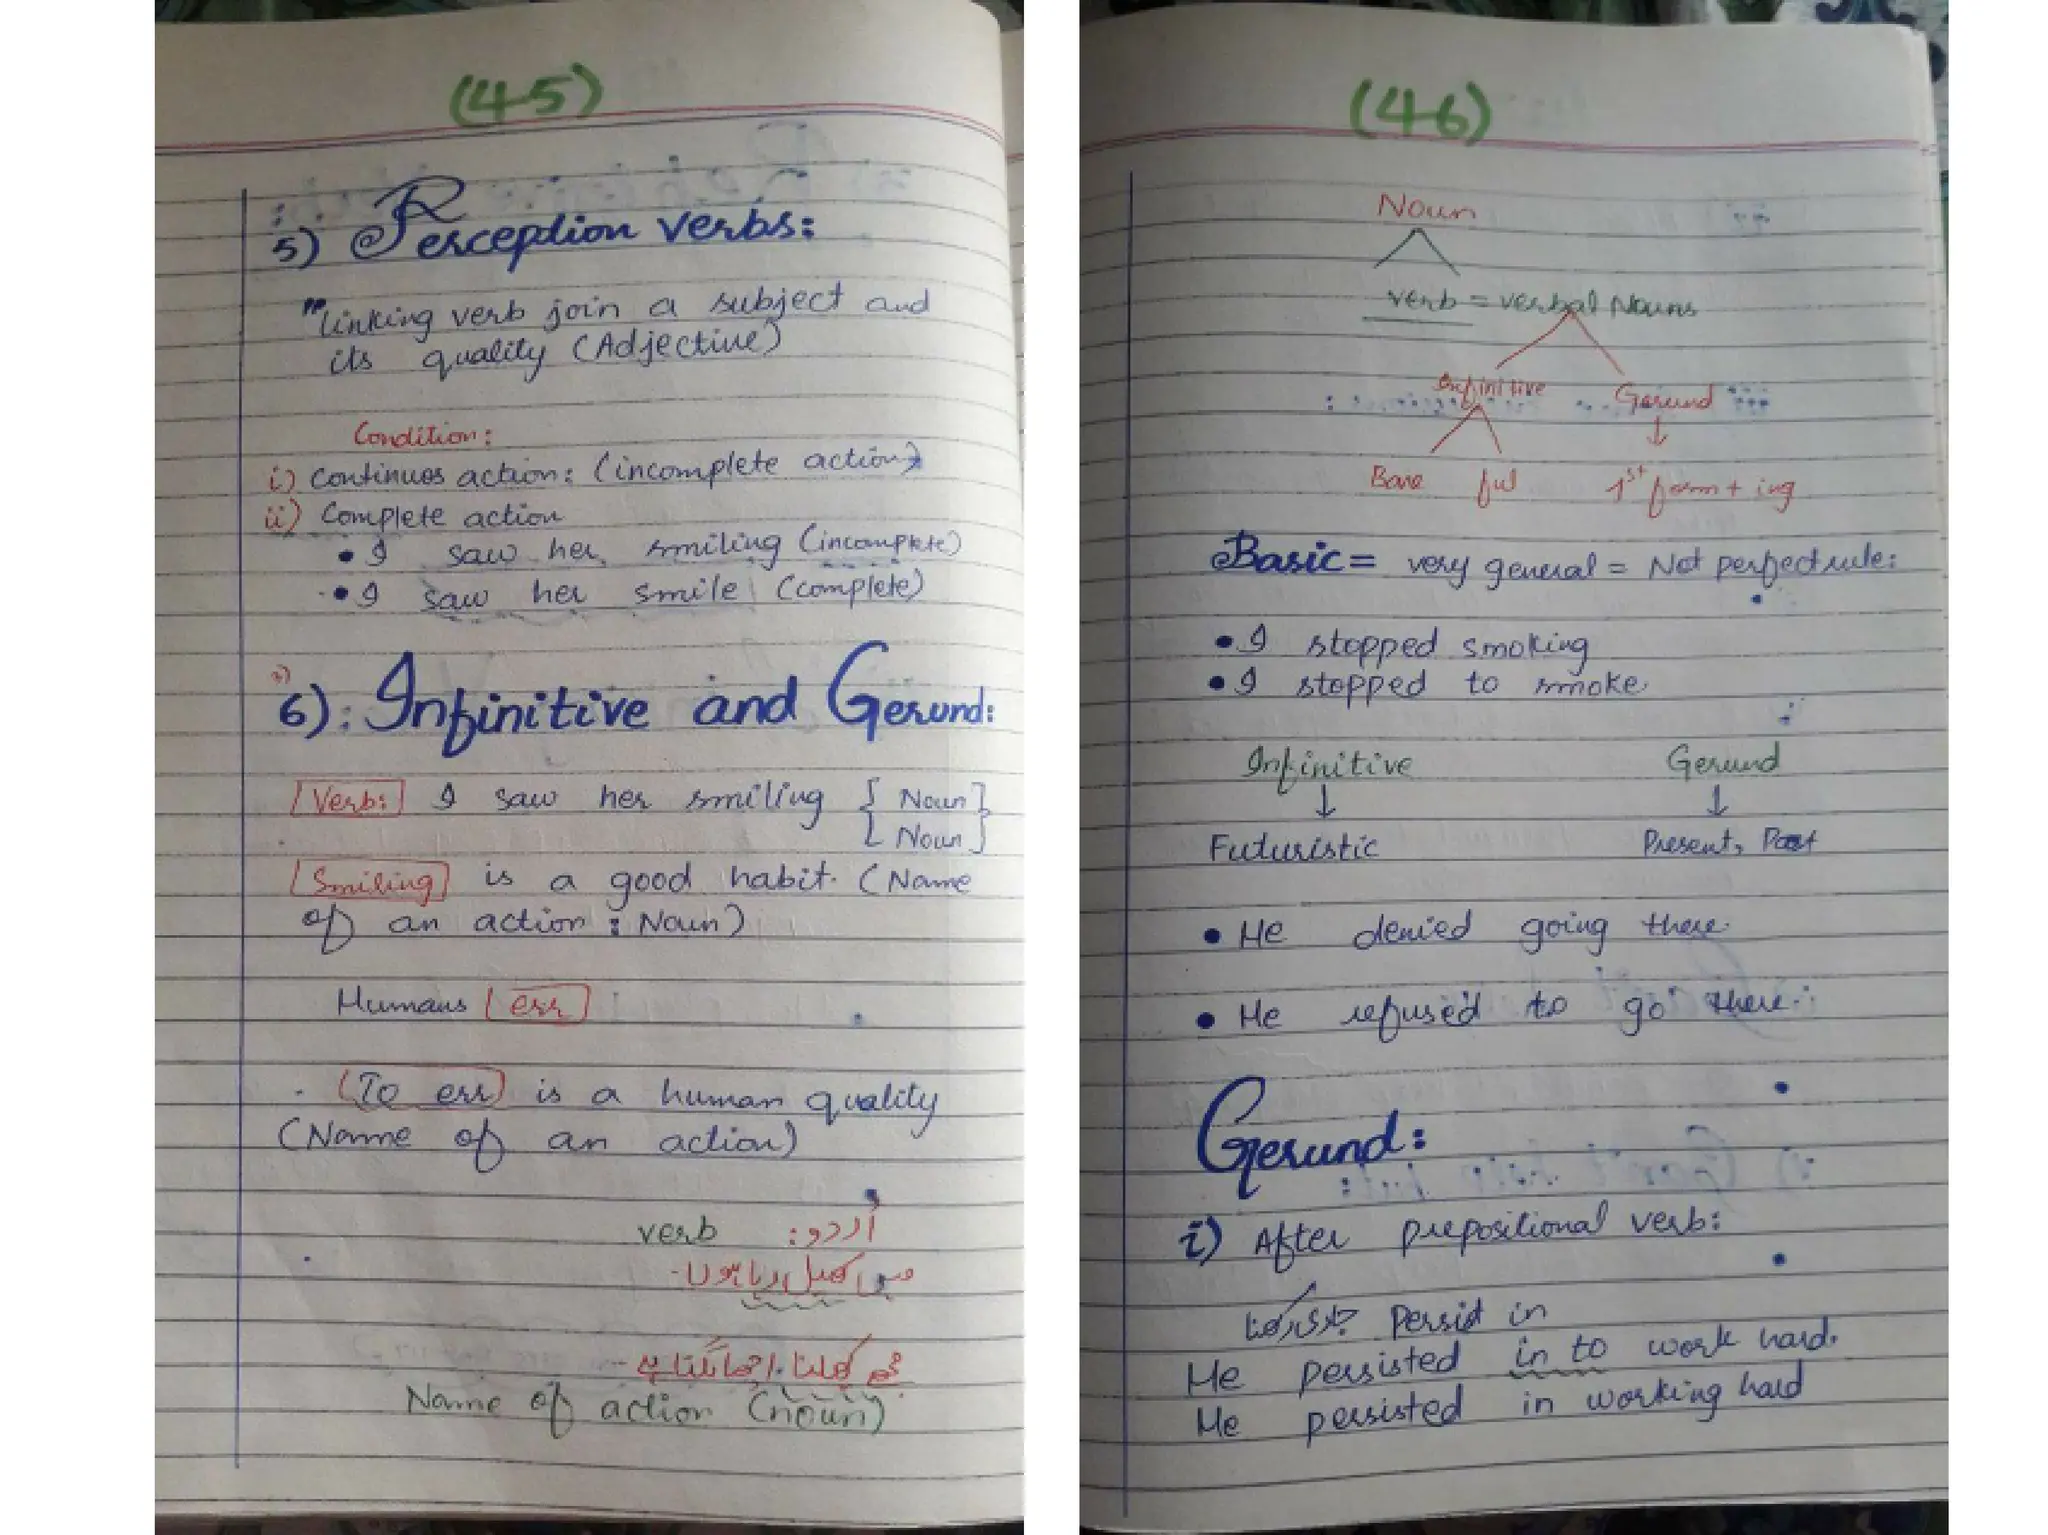 (45)
5) Perception verbs:
"Linking verb join a subject and
its quality (Adjective)
Condition:
i) Continuos action: (incomplete action)
ii) Complete action
• I saw her smiling (incomplete)
• I saw her smile (complete)
6): Infinitive and Gerund:
Verb: I saw her smiling { Noun }
{ Noun }
Smiling is a good habit. (Name
of an action : Noun)
Humans err
To err is a human quality
(Name of an action)
verb اُردو:
میں کھیل رہا ہوں۔
مجھے کھیلنا اچھا لگتا ہے۔
Name of action (noun)
(46)
Noun
verb = verbal Nouns
Infinitive Gerund
Bare ful 1st form + ing
Basic = very general = Not perfect rule:
• I stopped smoking
• I stopped to smoke.
Infinitive Gerund
Futuristic Present, Past
• He denied going there.
• He refused to go there.
Gerund:
i) After prepositional verb:
جاری رکھنا Persist in
He persisted in to work hard.
He persisted in working hard